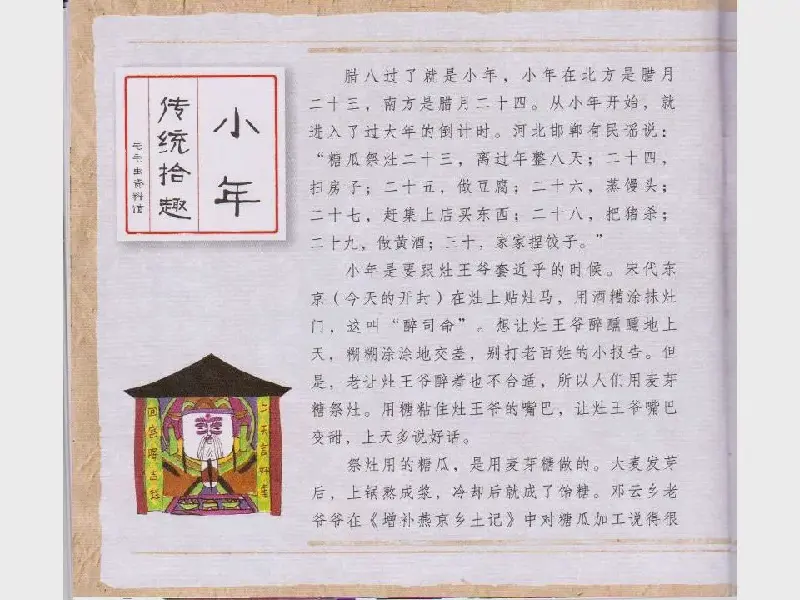 小年
传统拾趣
毛毛虫资料馆
腊八过了就是小年，小年在北方是腊月
二十三，南方是腊月二十四。从小年开始，就
进入了过大年的倒计时。河北邯郸有民谣说：
“糖瓜祭灶二十三，离过年整八天；二十四，
扫房子；二十五，做豆腐；二十六，蒸馒头；
二十七，赶集上店买东西；二十八，把猪杀；
二十九，做黄酒；三十，家家捏饺子。”
小年是要跟灶王爷套近乎的时候。宋代东
京（今天的开封）在灶上贴灶马，用酒糟涂抹灶
门，这叫“醉司命”。想让灶王爷醉醺醺地上
天，糊糊涂涂地交差，别打老百姓的小报告。但
是，老让灶王爷醉着也不合适，所以人们用麦芽
糖祭灶。用糖粘住灶王爷的嘴巴，让灶王爷嘴巴
变甜，上天多说好话。
祭灶用的糖瓜，是用麦芽糖做的。大麦发芽
后，上锅熬成浆，冷却后就成了饴糖。邓云乡老
爷爷在《增补燕京乡土记》中对糖瓜加工说得很
上天言好事
回宫降吉祥